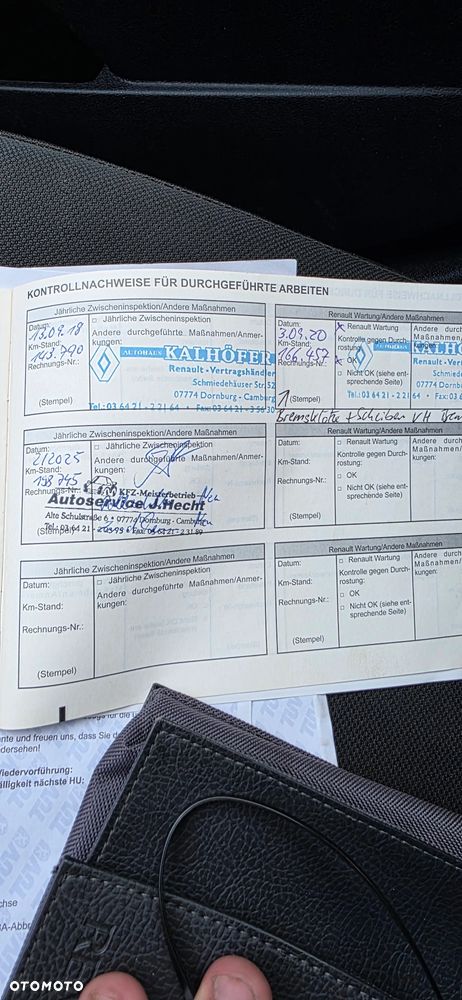 KONTROLLNACHWEISE FÜR DURCHGEFÜHRTE ARBEITEN
Jährliche Zwischeninspektion/Andere Maßnahmen
Datum:
13.09.18
Km-Stand:
143.790
Rechnungs-Nr.:
(Stempel)
□ Jährliche Zwischeninspektion
Andere durchgeführte Maßnahmen/Anmer-
kungen:
AUTOHAUS KALHÖFER
Renault-Vertragshändler
Schmiedehäuser Str. 52
07774 Dornburg-Camburg
Tel.: 03 64 21 - 2 21 64 • Fax: 03 64 21 - 3 56 30
Renault Wartung/Andere Maßnahmen
Datum:
3.09.20
Km-Stand:
166.457
Rechnungs-Nr.:
(Stempel)
x Renault Wartung
Kontrolle gegen Durch-
rostung:
x OK
□ Nicht OK (siehe ent-
sprechende Seite)
Andere durch
Maßnahmen/
kungen:
AUTOHAUS KALH
Renault-V
Schmied
07774 Do
Tel.: 03 64 21 - 2 21 64
+ Scheiben VH
Jährliche Zwischeninspektion/Andere Maßnahmen
Datum:
2/2025
Km-Stand:
198 745
Rechnungs-Nr.:
(Stempel)
□ Jährliche Zwischeninspektion
Andere durchgeführte Maßnahmen/Anmer-
kungen:
KFZ-Meisterbetrieb
Autoservice J.Hecht
Alte Schulstraße 6 • 07774 Dornburg-Camburg
Tel.: 03 64 21 -
Renault Wartung/Andere Maßnahmen
Datum:
Km-Stand:
Rechnungs-Nr.:
(Stempel)
□ Renault Wartung
Kontrolle gegen Durch-
rostung:
□ OK
□ Nicht OK (siehe ent-
sprechende Seite)
Andere durch
Maßnahmen/
kungen:
Jährliche Zwischeninspektion/Andere Maßnahmen
Datum:
Km-Stand:
Rechnungs-Nr.:
(Stempel)
□ Jährliche Zwischeninspektion
Andere durchgeführte Maßnahmen/Anmer-
kungen:
Renault Wartung/Andere Maßnahmen
Datum:
Km-Stand:
Rechnungs-Nr.:
(Stempel)
□ Renault Wartung
Kontrolle gegen Durch-
rostung:
□ OK
□ Nicht OK (siehe ent-
sprechende Seite)
Andere durch
Maßnahmen/
kungen:
nte und freuen uns, dass Sie d
edersehen!
Wiedervorführung:
älligkeit nächste HU:
TÜV
chse
A-Abbr
OTOMOTO